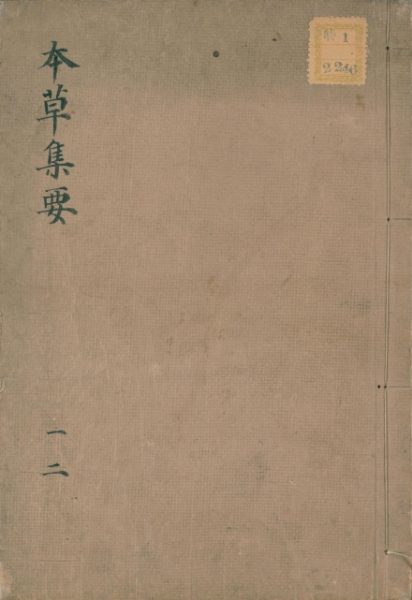 本草集要
一
二
1
2246